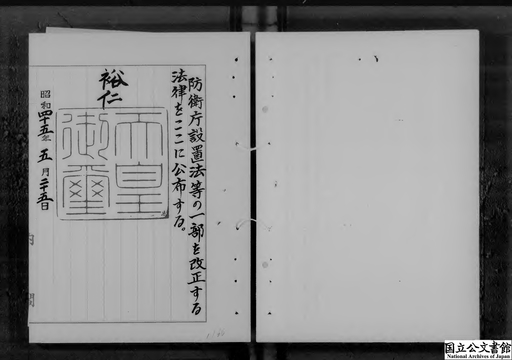 防衛庁設置法等の一部を改正する
法律をここに公布する。
裕仁
天皇
御璽
昭和四十五年五月二十五日
内閣
国立公文書館
National Archives of Japan